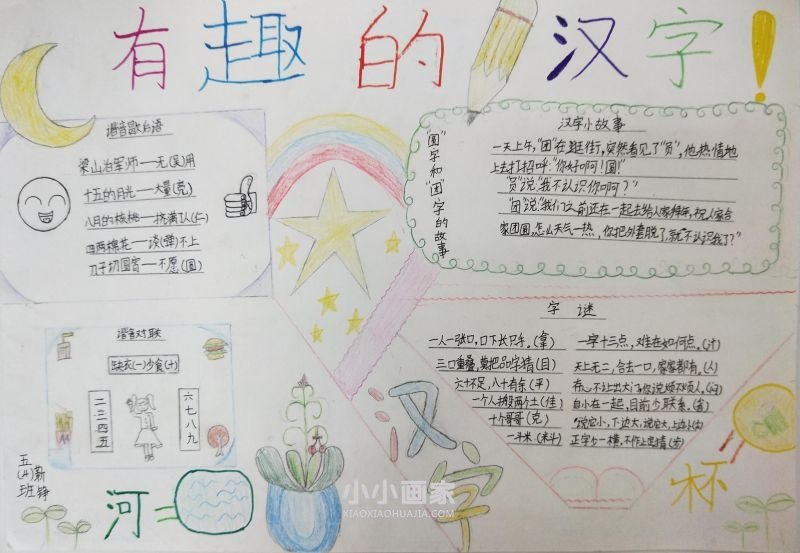 有趣的汉字!
谐音歇后语
梁山泊军师——无(吴)用
十五的月光——大量(亮)
八月的核桃——挤满了人(仁)
四两棉花——谈(弹)不上
刀子切圆宵——不愿(圆)
"圆"字和"团"字的故事
汉字小故事
一天上午,"团"在逛街,突然看见了"员",他热情地
上去打招呼:"你好啊!圆!"
"员"说"我不认识你啊?"
"团"说"我们之前还在一起去给人家拜年,祝人家合
家团圆,怎么天气一热,你把外套脱了,就不认识我了?"
谐音对联
缺衣(一)少食(十)
二三四五
六七八九
五(4)班
字 谜
一人一张口,口下长只手。(拿)
三口重叠,莫把品字猜(目)
六十不足,八十有余(平)
一个人搬两个土(佳)
十个哥哥(克)
一斗米(料)
一字十三点,难在如何点。(汁)
天上无二,合去一口,家家都有。(人)
自小在一起,目前少联系。(省)
正字少一横,不作上定猜(步)
汉字
河=
杯
小小画家
XIAOXIAOHUAJIA.COM